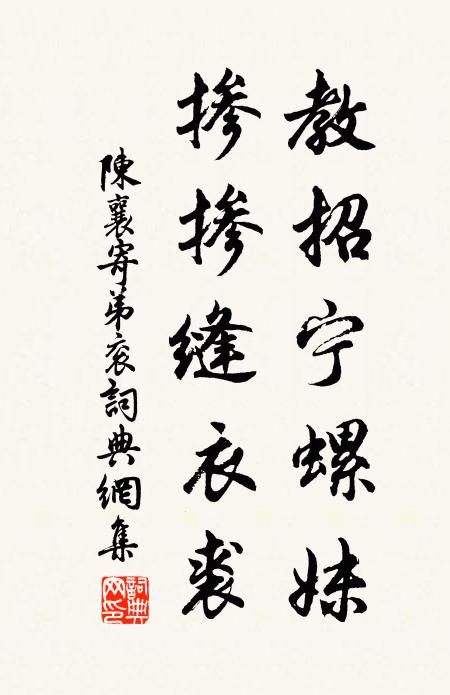 教招宁螺妹
掺掺缝衣裘
陳襄寄弟衮詞典網集
詞典網印